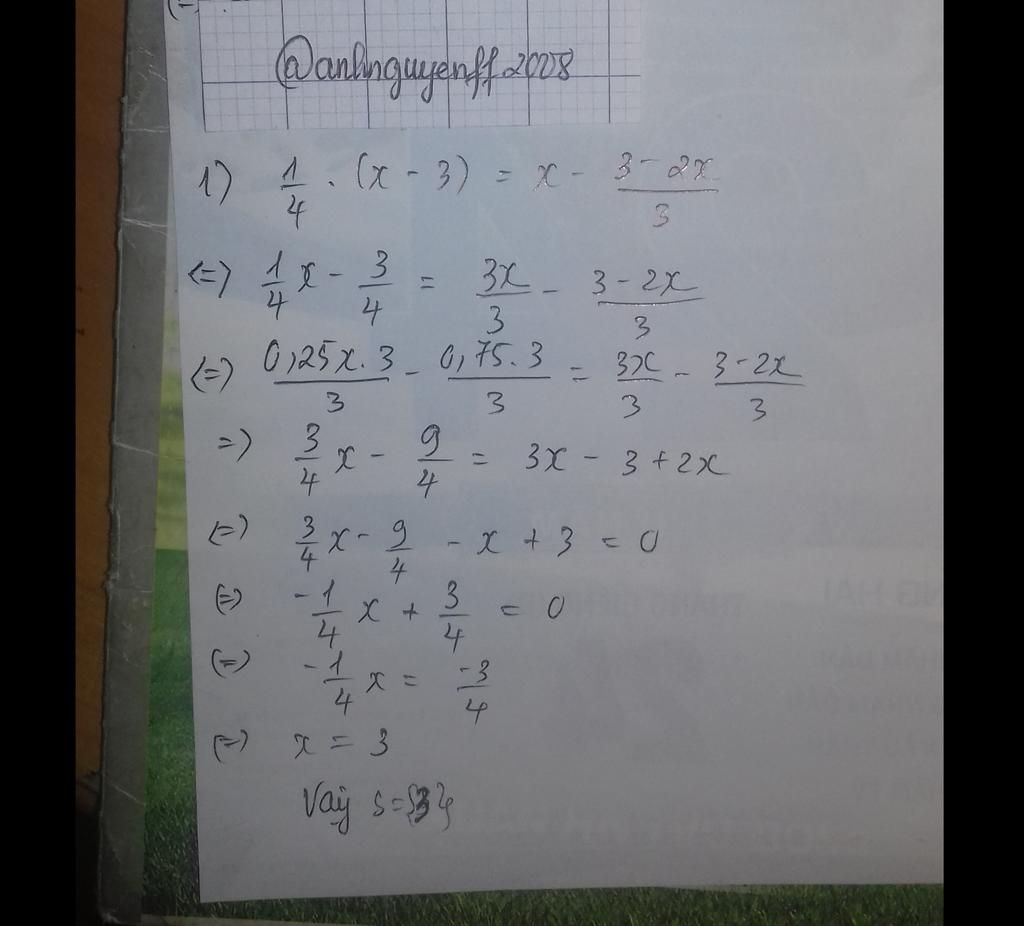 @anhnguyenff2008
1) 1/4 . (x - 3) = x - (3 - 2x)/3
<=> 1/4 x - 3/4 = 3x/3 - (3 - 2x)/3
<=> (0,25x . 3)/3 - (0,75 . 3)/3 = 3x/3 - (3 - 2x)/3
=> 3/4 x - 9/4 = 3x - 3 + 2x
<=> 3/4 x - 9/4 - x + 3 = 0
<=> -1/4 x + 3/4 = 0
<=> -1/4 x = -3/4
<=> x = 3
Vậy S = {3}